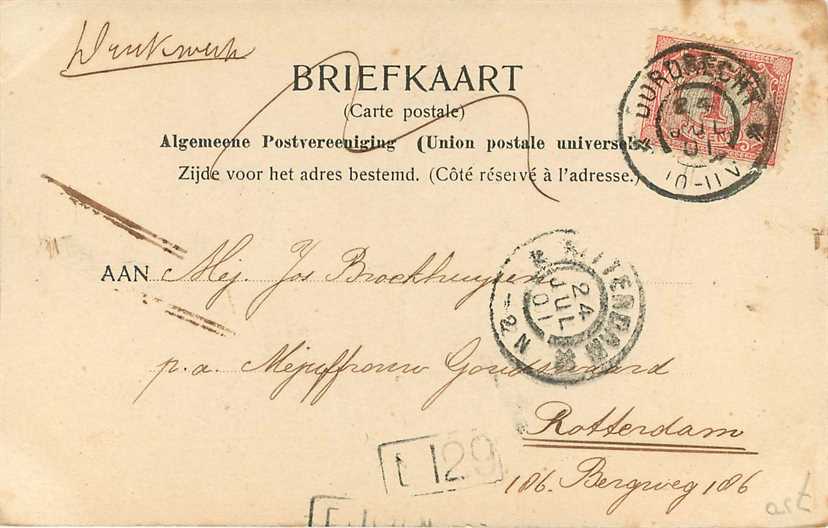 Drukwerk
BRIEFKAART
(Carte postale)
Algemeene Postvereeniging (Union postale universelle)
Zijde voor het adres bestemd. (Côté réservé à l'adresse.)
DORDRECHT
24
JUL
01
10-11V
1
CENT
ROTTERDAM
24
JUL
01
-2N
AAN Mej. Jos Broekhuijsen
p.a. Mejuffrouw Goudswaard
Rotterdam
186. Bergweg 186
129